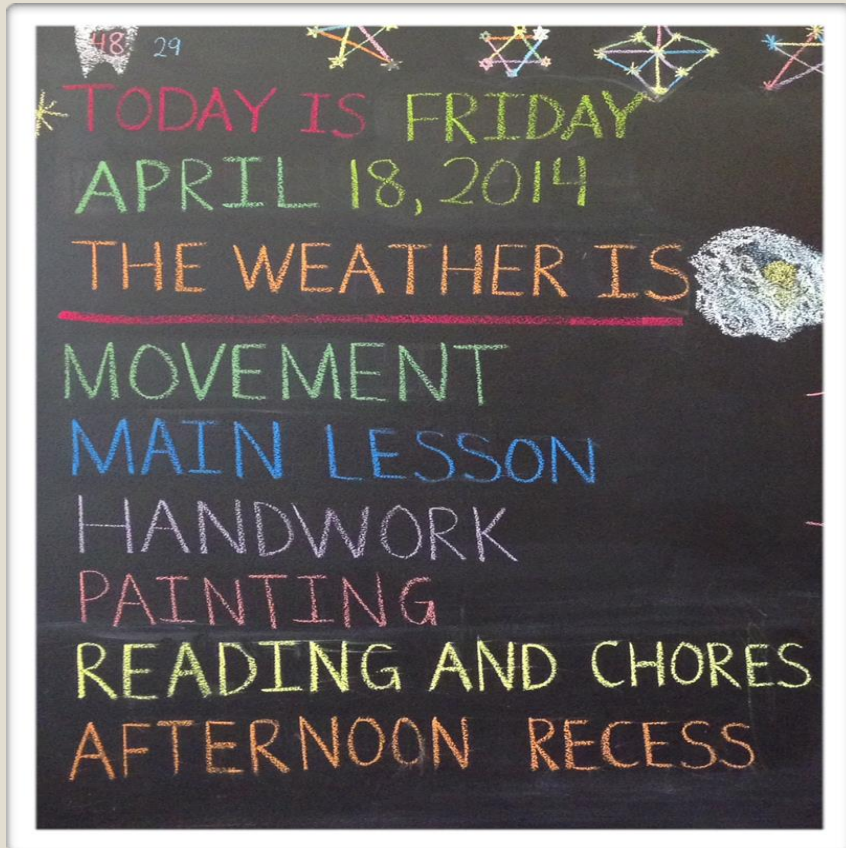 48 29
TODAY IS FRIDAY
APRIL 18, 2014
THE WEATHER IS
MOVEMENT
MAIN LESSON
HANDWORK
PAINTING
READING AND CHORES
AFTERNOON RECESS